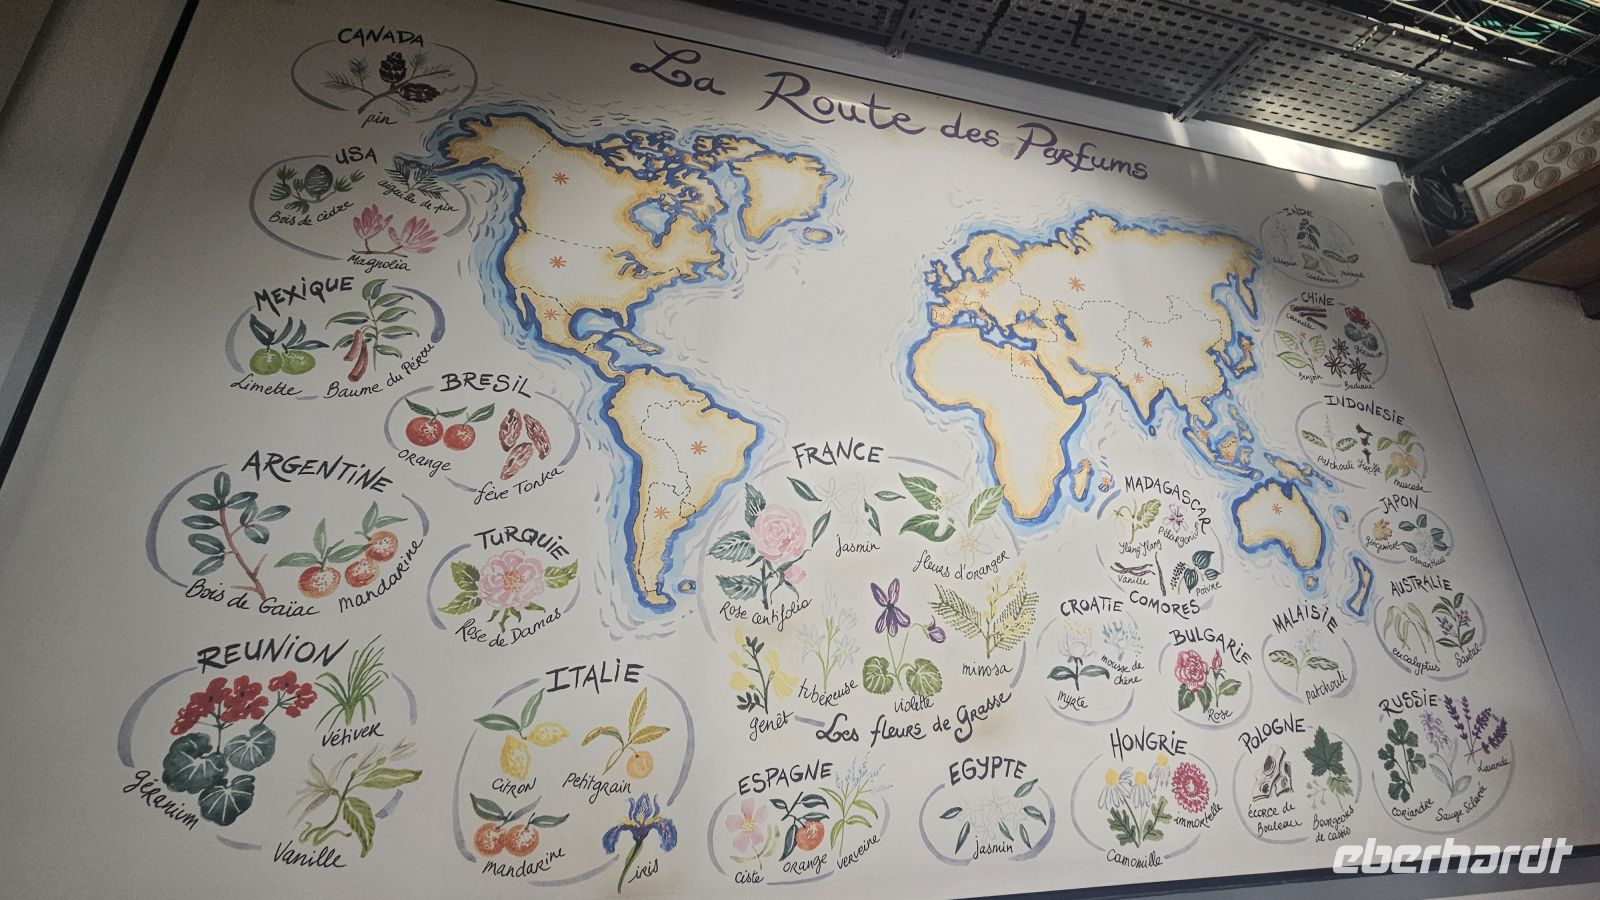 La Route des Parfums
CANADA
pin
USA
Bois de cèdre
aiguille de pin
Magnolia
MEXIQUE
Limette
Baume du Pérou
BRESIL
orange
fève Tonka
ARGENTINE
Bois de Gaïac
mandarine
TURQUIE
Rose de Damas
REUNION
géranium
vétiver
Vanille
ITALIE
citron
Petitgrain
mandarine
iris
FRANCE
Rose centifolia
Jasmin
fleurs d'oranger
genêt
tubéreuse
violette
mimosa
Les fleurs de Grasse
ESPAGNE
ciste
orange
verveine
EGYPTE
Jasmin
MADAGASCAR
Ylang Ylang
pélargonium
Vanille
Poivre
COMORES
CROATIE
myrte
mousse de
chêne
BULGARIE
Rose
MALAISIE
patchouli
HONGRIE
Camomille
immortelle
POLOGNE
écorce de
Bouleau
Bourgeons
de cassis
RUSSIE
coriandre
Sauge Sclarée
Lavande
INDE
Santal
patchouli
CHINE
cannelle
géranium
Benjoin
Badiane
INDONESIE
patchouli
Girofle
muscade
JAPON
gingembre
osmanthus
AUSTRALIE
eucalyptus
Santal
eberhardt